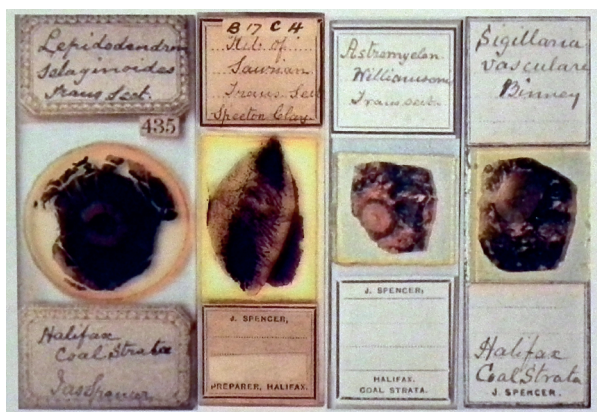 Lepidodendron
Selaginoides
Trans Sect.
435
Halifax
Coal Strata
Jas Spencer
B 17 C 4
Rib of
Saurian
Trans Sect
Speeton Clay
J. SPENCER,
PREPARER, HALIFAX.
Astromyelon
Williamsonis
Trans sect.
J. SPENCER,
HALIFAX.
COAL STRATA.
Sigillaria
vasculare
Binney
Halifax
Coal Strata
J. SPENCER.